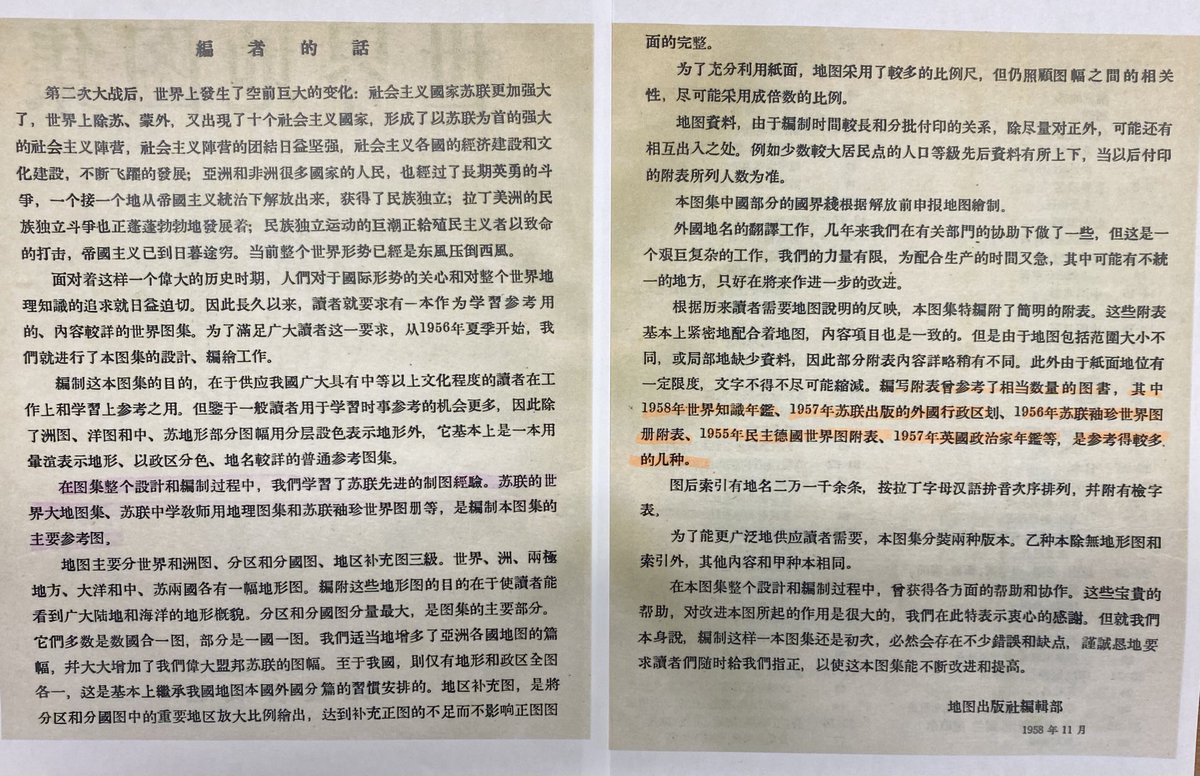 編者的話
第二次大战后，世界上發生了空前巨大的变化：社会主义國家苏联更加强大
了，世界上除苏、蒙外，又出現了十个社会主义國家，形成了以苏联为首的强大
的社会主义陣营，社会主义陣营的团結日益坚强，社会主义各國的經济建設和文
化建設，不断飞躍的發展；亞洲和非洲很多國家的人民，也經过了長期英勇的斗
爭，一个接一个地从帝國主义統治下解放出来，获得了民族独立；拉丁美洲的民
族独立斗爭也正蓬蓬勃勃地發展着；民族独立运动的巨潮正給殖民主义者以致命
的打击，帝國主义已到日暮途穷。当前整个世界形势已經是东風压倒西風。
面对着这样一个偉大的历史时期，人們对于國际形势的关心和对整个世界地
理知識的追求就日益迫切。因此長久以来，讀者就要求有一本作为学習参考用
的、內容較詳的世界图集。为了滿足广大讀者这一要求，从1956年夏季开始，我
們就進行了本图集的設計、編繪工作。
編制这本图集的目的，在于供应我國广大具有中等以上文化程度的讀者在工
作上和学習上参考之用。但鑒于一般讀者用于学習时事参考的机会更多，因此除
了洲图、洋图和中、苏地形部分图幅用分層設色表示地形外，它基本上是一本用
暈渲表示地形、以政区分色、地名較詳的普通参考图集。
在图集整个設計和編制过程中，我們学習了苏联先進的制图經驗。苏联的世
界大地图集、苏联中学教师用地理图集和苏联袖珍世界图册等，是編制本图集的
主要参考图。
地图主要分世界和洲图、分区和分國图、地区补充图三級。世界、洲、兩極
地方、大洋和中、苏兩國各有一幅地形图。編附这些地形图的目的在于使讀者能
看到广大陆地和海洋的地形概貌。分区和分國图分量最大，是图集的主要部分。
它們多数是数國合一图，部分是一國一图。我們适当地增多了亞洲各國地图的篇
幅，幷大大增加了我們偉大盟邦苏联的图幅。至于我國，則仅有地形和政区全图
各一，这是基本上繼承我國地图本國外國分篇的習慣安排的。地区补充图，是將
分区和分國图中的重要地区放大比例繪出，达到补充正图的不足而不影响正图图
面的完整。
为了充分利用紙面，地图采用了較多的比例尺，但仍照顧图幅之間的相关
性，尽可能采用成倍数的比例。
地图資料，由于編制时間較長和分批付印的关系，除尽量对正外，可能还有
相互出入之处。例如少数較大居民点的人口等級先后資料有所上下，当以后付印
的附表所列人数为准。
本图集中國部分的國界綫根据解放前申报地图繪制。
外國地名的翻譯工作，几年来我們在有关部門的协助下做了一些，但这是一
个艰巨复杂的工作，我們的力量有限，为配合生产的时間又急，其中可能有不統
一的地方，只好在將来作進一步的改進。
根据历来讀者需要地图說明的反映，本图集特編附了簡明的附表。这些附表
基本上紧密地配合着地图，內容項目也是一致的。但是由于地图包括范圍大小不
同，或局部地缺少資料，因此部分附表內容詳略稍有不同。此外由于紙面地位有
一定限度，文字不得不尽可能縮减。編写附表曾参考了相当数量的图書，其中
1958年世界知識年鑑、1957年苏联出版的外國行政区划、1956年苏联袖珍世界图
册附表、1955年民主德國世界图附表、1957年英國政治家年鑑等，是参考得較多
的几种。
图后索引有地名二万一千余条，按拉丁字母汉語拼音次序排列，幷附有檢字
表。
为了能更广泛地供应讀者需要，本图集分裝兩种版本。乙种本除無地形图和
索引外，其他內容和甲种本相同。
在本图集整个設計和編制过程中，曾获得各方面的帮助和协作。这些宝貴的
帮助，对改進本图所起的作用是很大的，我們在此特表示衷心的感謝。但就我們
本身說，編制这样一本图集还是初次，必然会存在不少錯誤和缺点，謹誠恳地要
求讀者們随时給我們指正，以使这本图集能不断改進和提高。
地图出版社編輯部
1958年11月